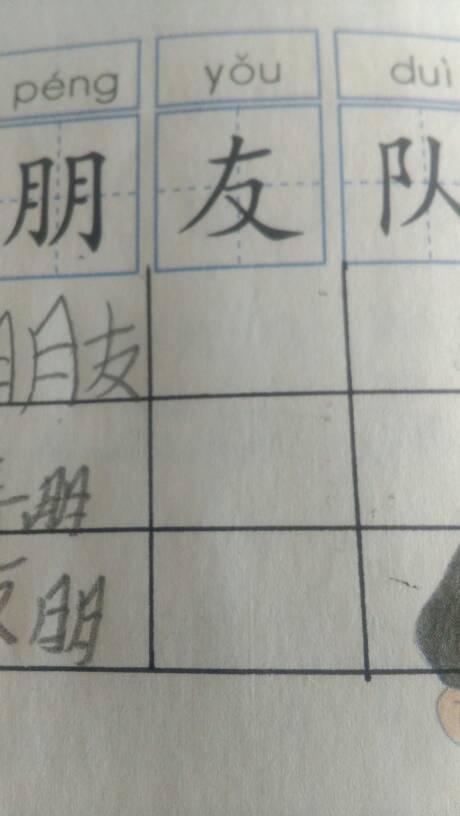 péng yǒu duì
朋 友 队
朋友
朋
朋